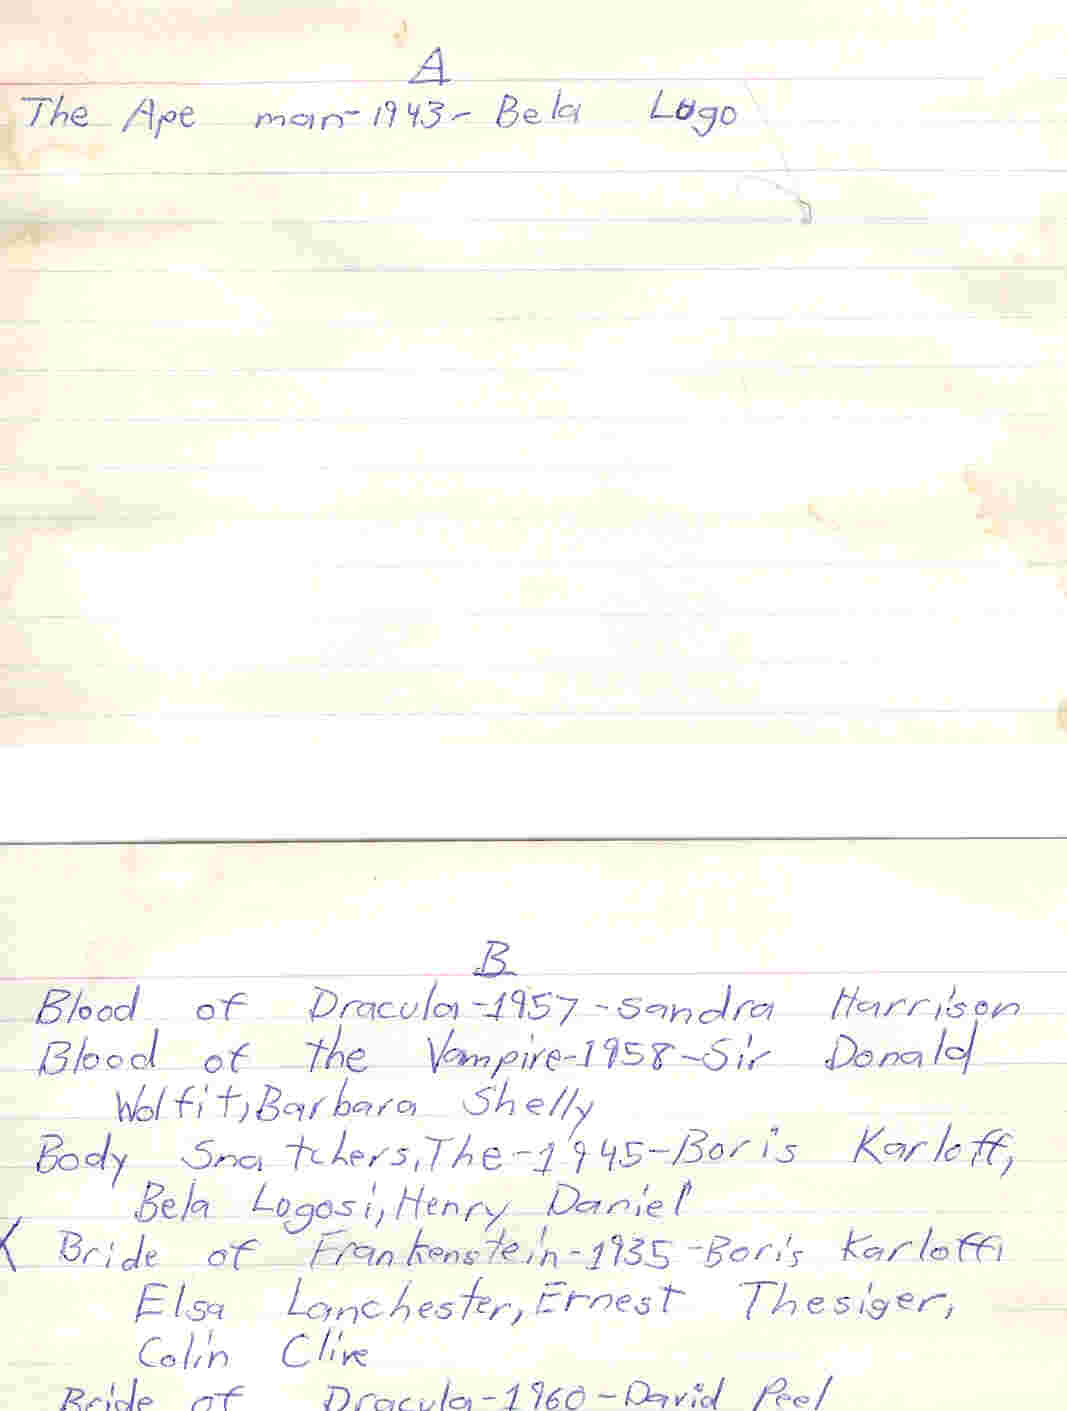 A
The Ape man-1943- Bela Lugo
B
Blood of Dracula-1957-Sandra Harrison
Blood of the Vampire-1958-Sir Donald
Wolfit, Barbara Shelly
Body Snatchers, The-1945-Boris Karloff,
Bela Logosi, Henry Daniel
X Bride of Frankenstein-1935-Boris Karloff,
Elsa Lanchester, Ernest Thesiger,
Colin Clive
Bride of Dracula-1960-David Peel